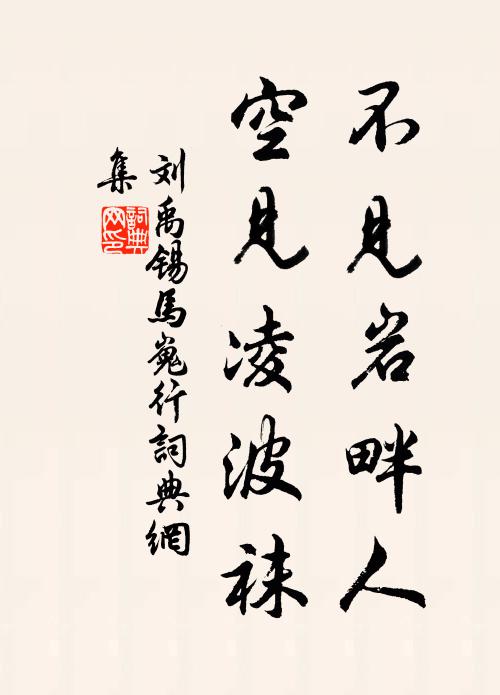 不見岩畔人
空見凌波袜
刘禹锡馬嵬行詞典網
集
詞典
网印